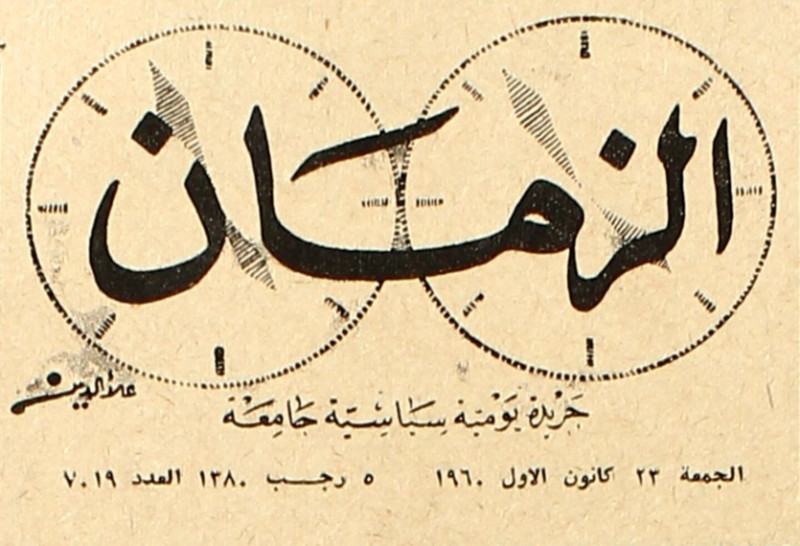 الزمان
علاء الدين
جريدة يومية سياسية جامعة
الجمعة ٢٣ كانون الاول ١٩٦٠ ٥ رجب ١٣٨٠ العدد ٧٠١٩